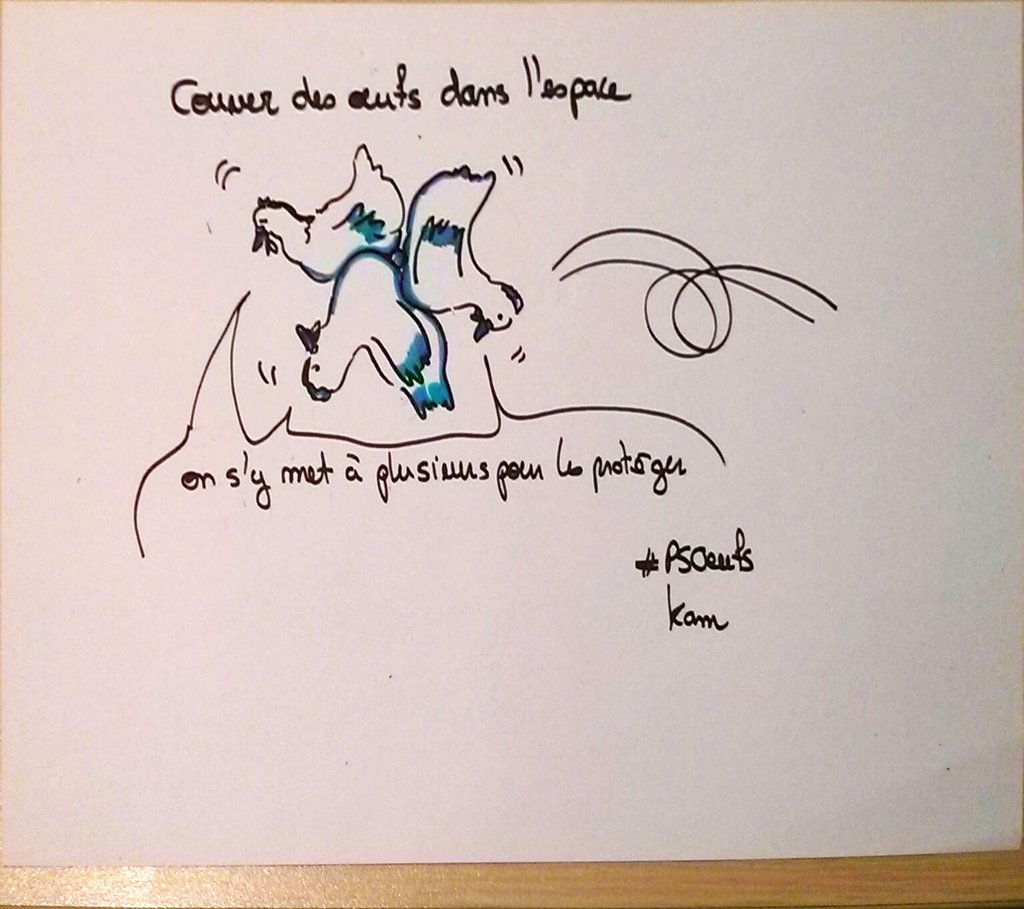 Couver des œufs dans l'espace
on s'y met à plusieurs pour les protéger
#PSOeufs
Kam